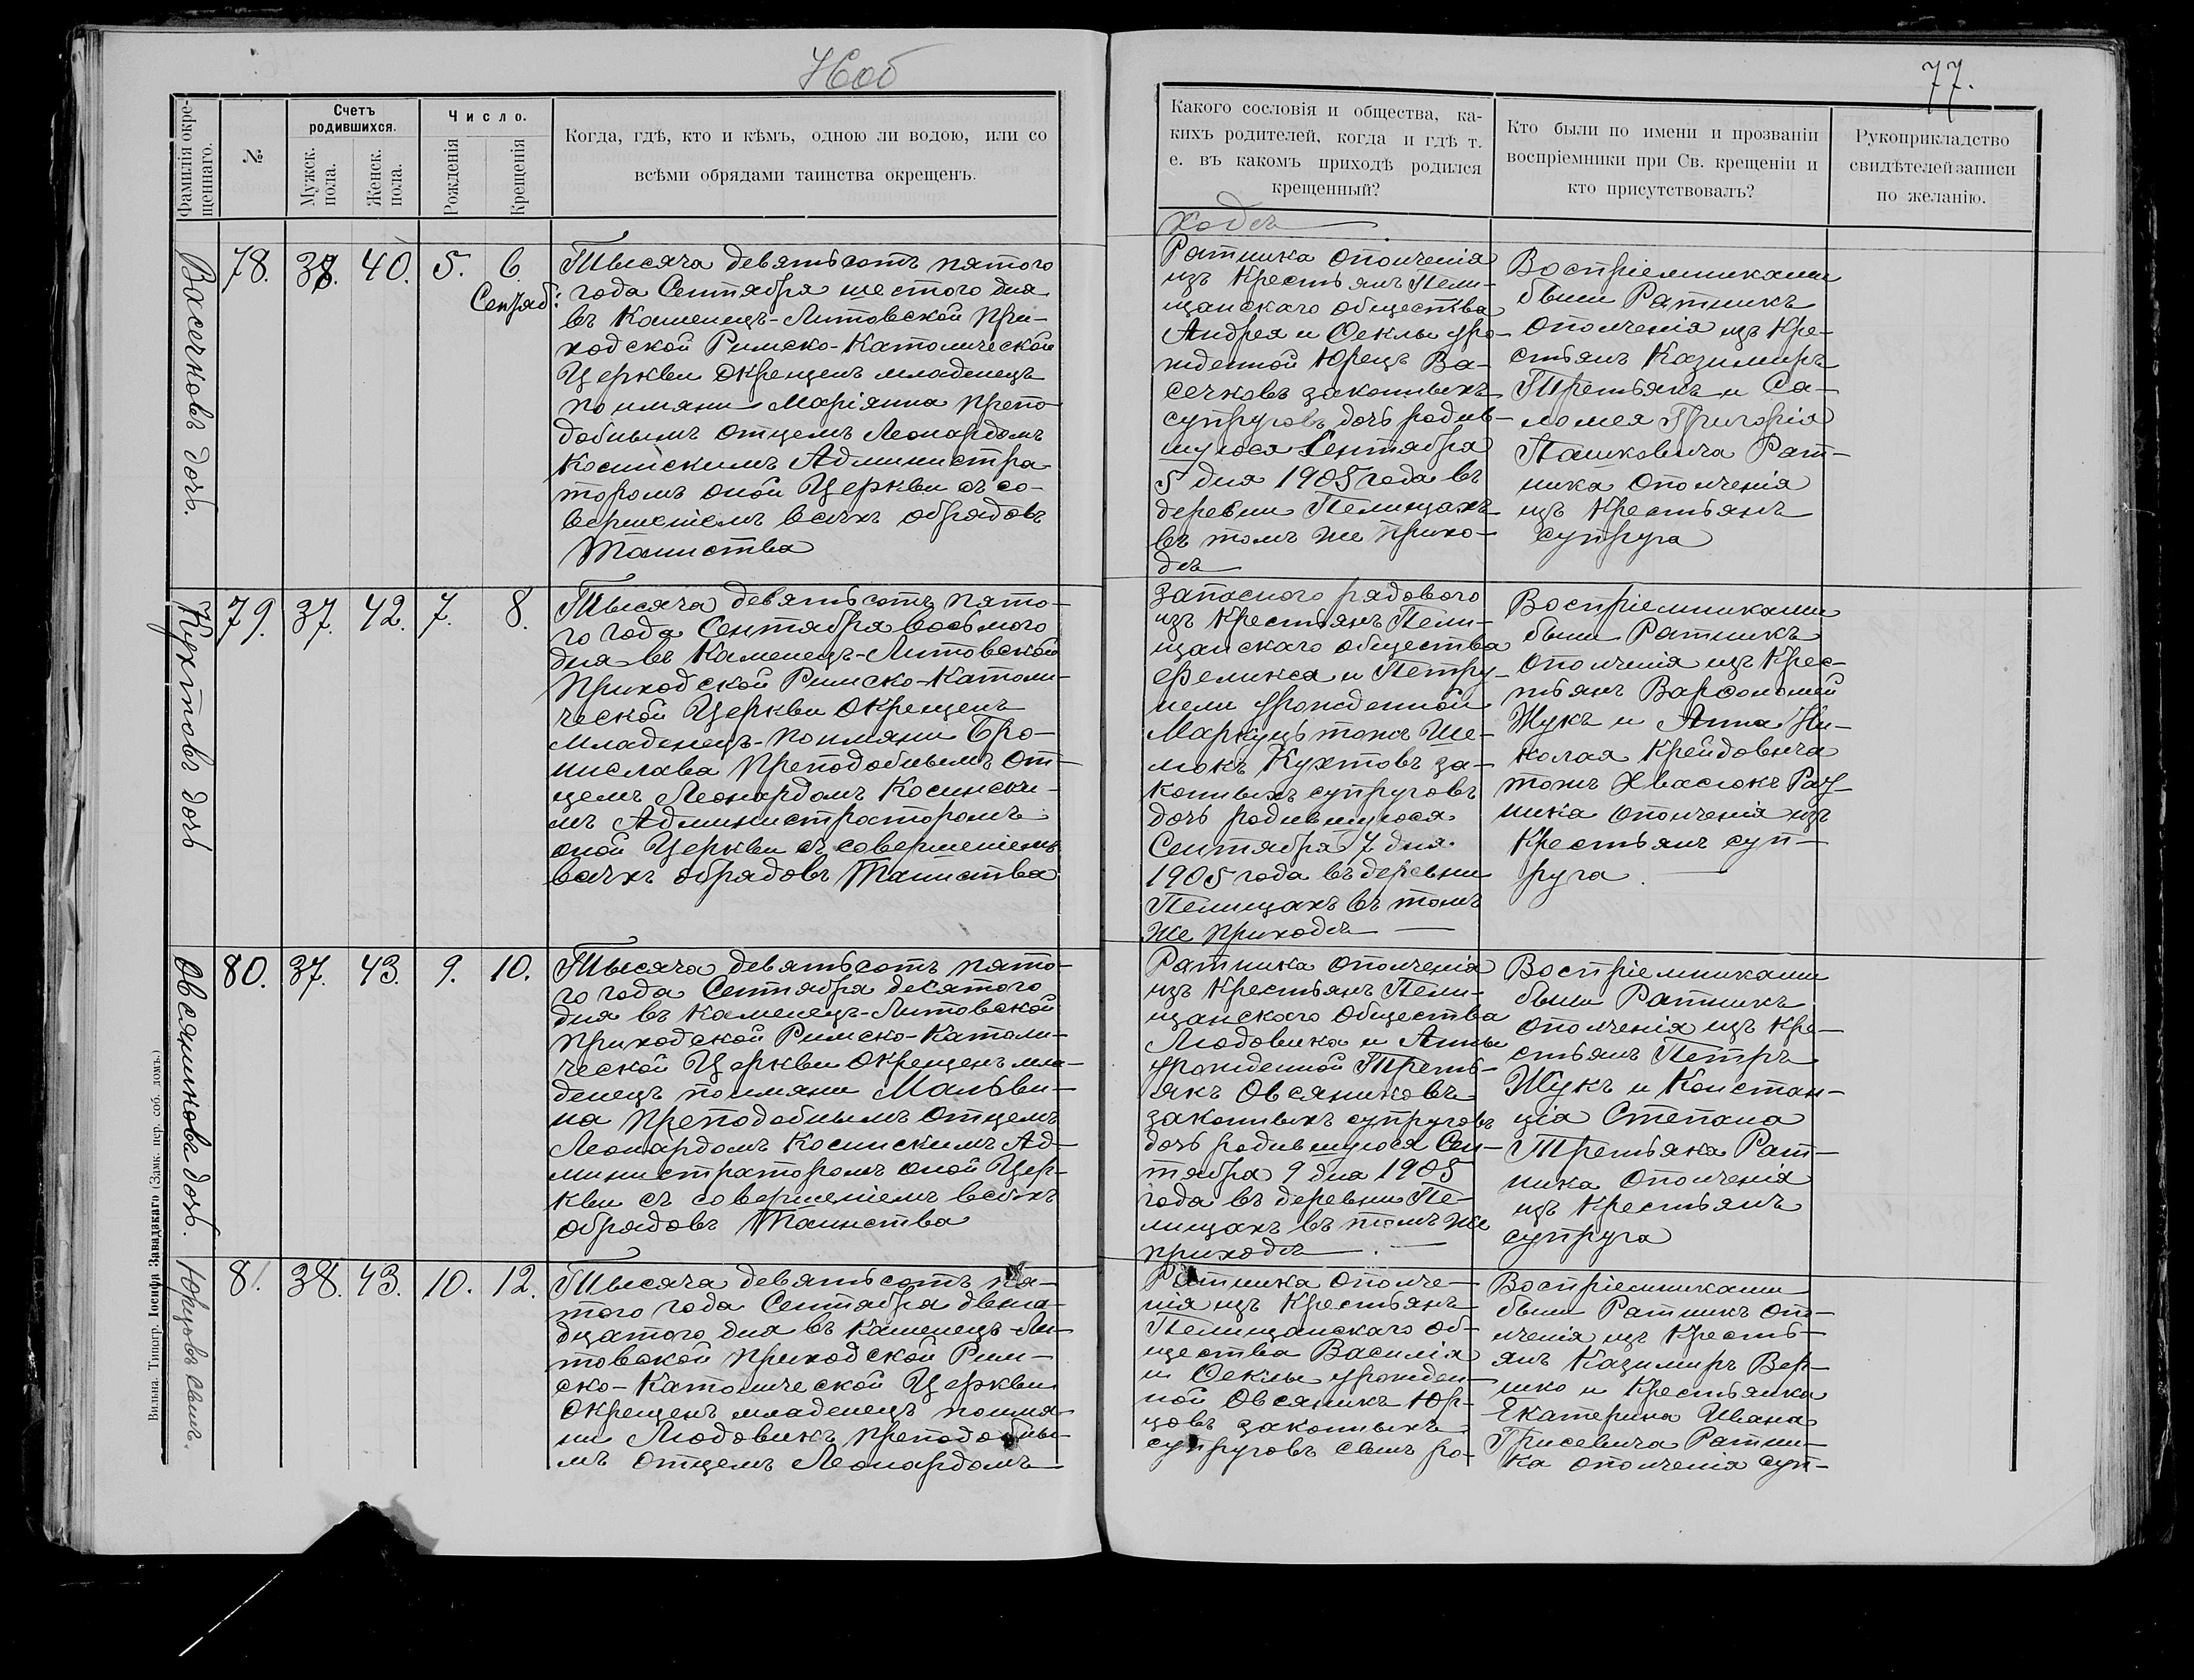 77.
Фамилія окре-
щеннаго.
№
Счетъ
родившихся.
Мужск.
пола.
Женск.
пола.
Число.
Рожденія
Крещенія
Когда, гдѣ, кто и кѣмъ, одною ли водою, или со
всѣми обрядами таинства окрещенъ.
Какого сословія и общества, ка-
кихъ родителей, когда и гдѣ т.
е. въ какомъ приходѣ родился
крещенный?
Кто были по имени и прозванію
воспріемники при Св. крещеніи и
кто присутствовалъ?
Рукоприкладство
свидѣтелей записи
по желанію.
ходѣ
Васечковъ дочь.
78. 38. 40. 5. 6
Сентяб:
Тысяча девятьсотъ пятого
года Сентября шестого дня
въ Каменецъ-Литовской При-
ходской Римско-Католической
Церкви окрещенъ младенецъ
по имяни Маріянна препо-
добнымъ отцемъ Леонардомъ
Косинскимъ Администра
торомъ оной Церкви съ со-
вершеніемъ всѣхъ обрядовъ
Таинства
Ратника ополченія
изъ Крестьянъ Пели-
щанскаго общества
Андрея и Феклы уро-
жденной Юрецъ Ва-
сечковъ законныхъ
супруговъ дочь родив-
шуюся Сентября
5 дня 1905 года въ
деревни Пелищахъ
въ томъ же прихо-
дѣ
Воспріемниками
были Ратникъ
ополченія изъ Кре-
стьянъ Казимиръ
Третьякъ и Са-
ломея Григорія
Пашковича Рат-
ника ополченія
изъ Крестьянъ
супруга
Кухтовъ дочь
79. 37. 42. 7. 8.
Тысяча девятьсотъ пято-
го года Сентября восьмого
дня въ Каменецъ-Литовской
Приходской Римско-Католи-
ческой Церкви окрещенъ
младенецъ по имяни Бро-
нислава преподобнымъ от-
цемъ Леонардомъ Косински-
мъ Администраторомъ
оной Церкви съ совершеніемъ
всѣхъ обрядовъ Таинства
запасного рядового
изъ Крестьянъ Пели-
щанскаго общества
Феликса и Петру-
нели урожденной
Маркуць тожъ Ше-
мокъ Кухтовъ за-
конныхъ супруговъ
дочь родившуюся
Сентября 7 дня
1905 года въ деревни
Пелищахъ въ томъ
же приходѣ
Воспріемниками
были Ратникъ
ополченія изъ Крес-
тьянъ Варфоломей
Жукъ и Анна Ни-
колая Крейдовича
тожъ Хвасюкъ Рат-
ника ополченія изъ
Крестьянъ суп-
руга.
Овсяниковъ дочь.
80. 37. 43. 9. 10.
Тысяча девятьсотъ пято-
го года Сентября десятого
дня въ Каменецъ-Литовской
приходской Римско-Католи-
ческой Церкви окрещенъ мла-
денецъ по имяни Мальви-
на преподобнымъ отцемъ
Леонардомъ Косинскимъ Ад-
министраторомъ оной Цер-
кви съ совершеніемъ всѣхъ
обрядовъ Таинства
Ратника ополченія
изъ Крестьянъ Пели-
щанскаго общества
Людовика и Анны
урожденной Треть-
якъ Овсяниковъ
законныхъ супруговъ
дочь родившуюся Сен-
тября 9 дня 1905
года въ деревни Пе-
лищахъ въ томъ же
приходѣ.
Воспріемниками
были Ратникъ
ополченія изъ Кре-
стьянъ Петръ
Жукъ и Констан-
ція Степана
Третьяка Рат-
ника ополченія
изъ Крестьянъ
супруга
Юрцовъ сынъ.
81. 38. 43. 10. 12.
Тысяча девятьсотъ пя-
того года Сентября двѣна-
дцатого дня въ Каменецъ-Ли-
товской приходской Рим-
ско-Католической Церкви
окрещенъ младенецъ по имя-
ни Людовикъ преподобны-
мъ отцемъ Леонардомъ
Ратника ополче-
нія изъ Крестьянъ
Пелищанскаго об-
щества Василія
и Феклы урожден-
ной Овсяникъ Юр-
цовъ законныхъ
супруговъ сынъ ро-
Воспріемниками
были Ратникъ опо-
лченія изъ Кресть-
янъ Казимиръ Вер-
и Крестьянка
Екатерина Ивана
Грисевича Ратни-
ка ополченія суп-
Вильна. Типогр. Іосифа Завадзкаго (Замк. пер. соб. домъ.)